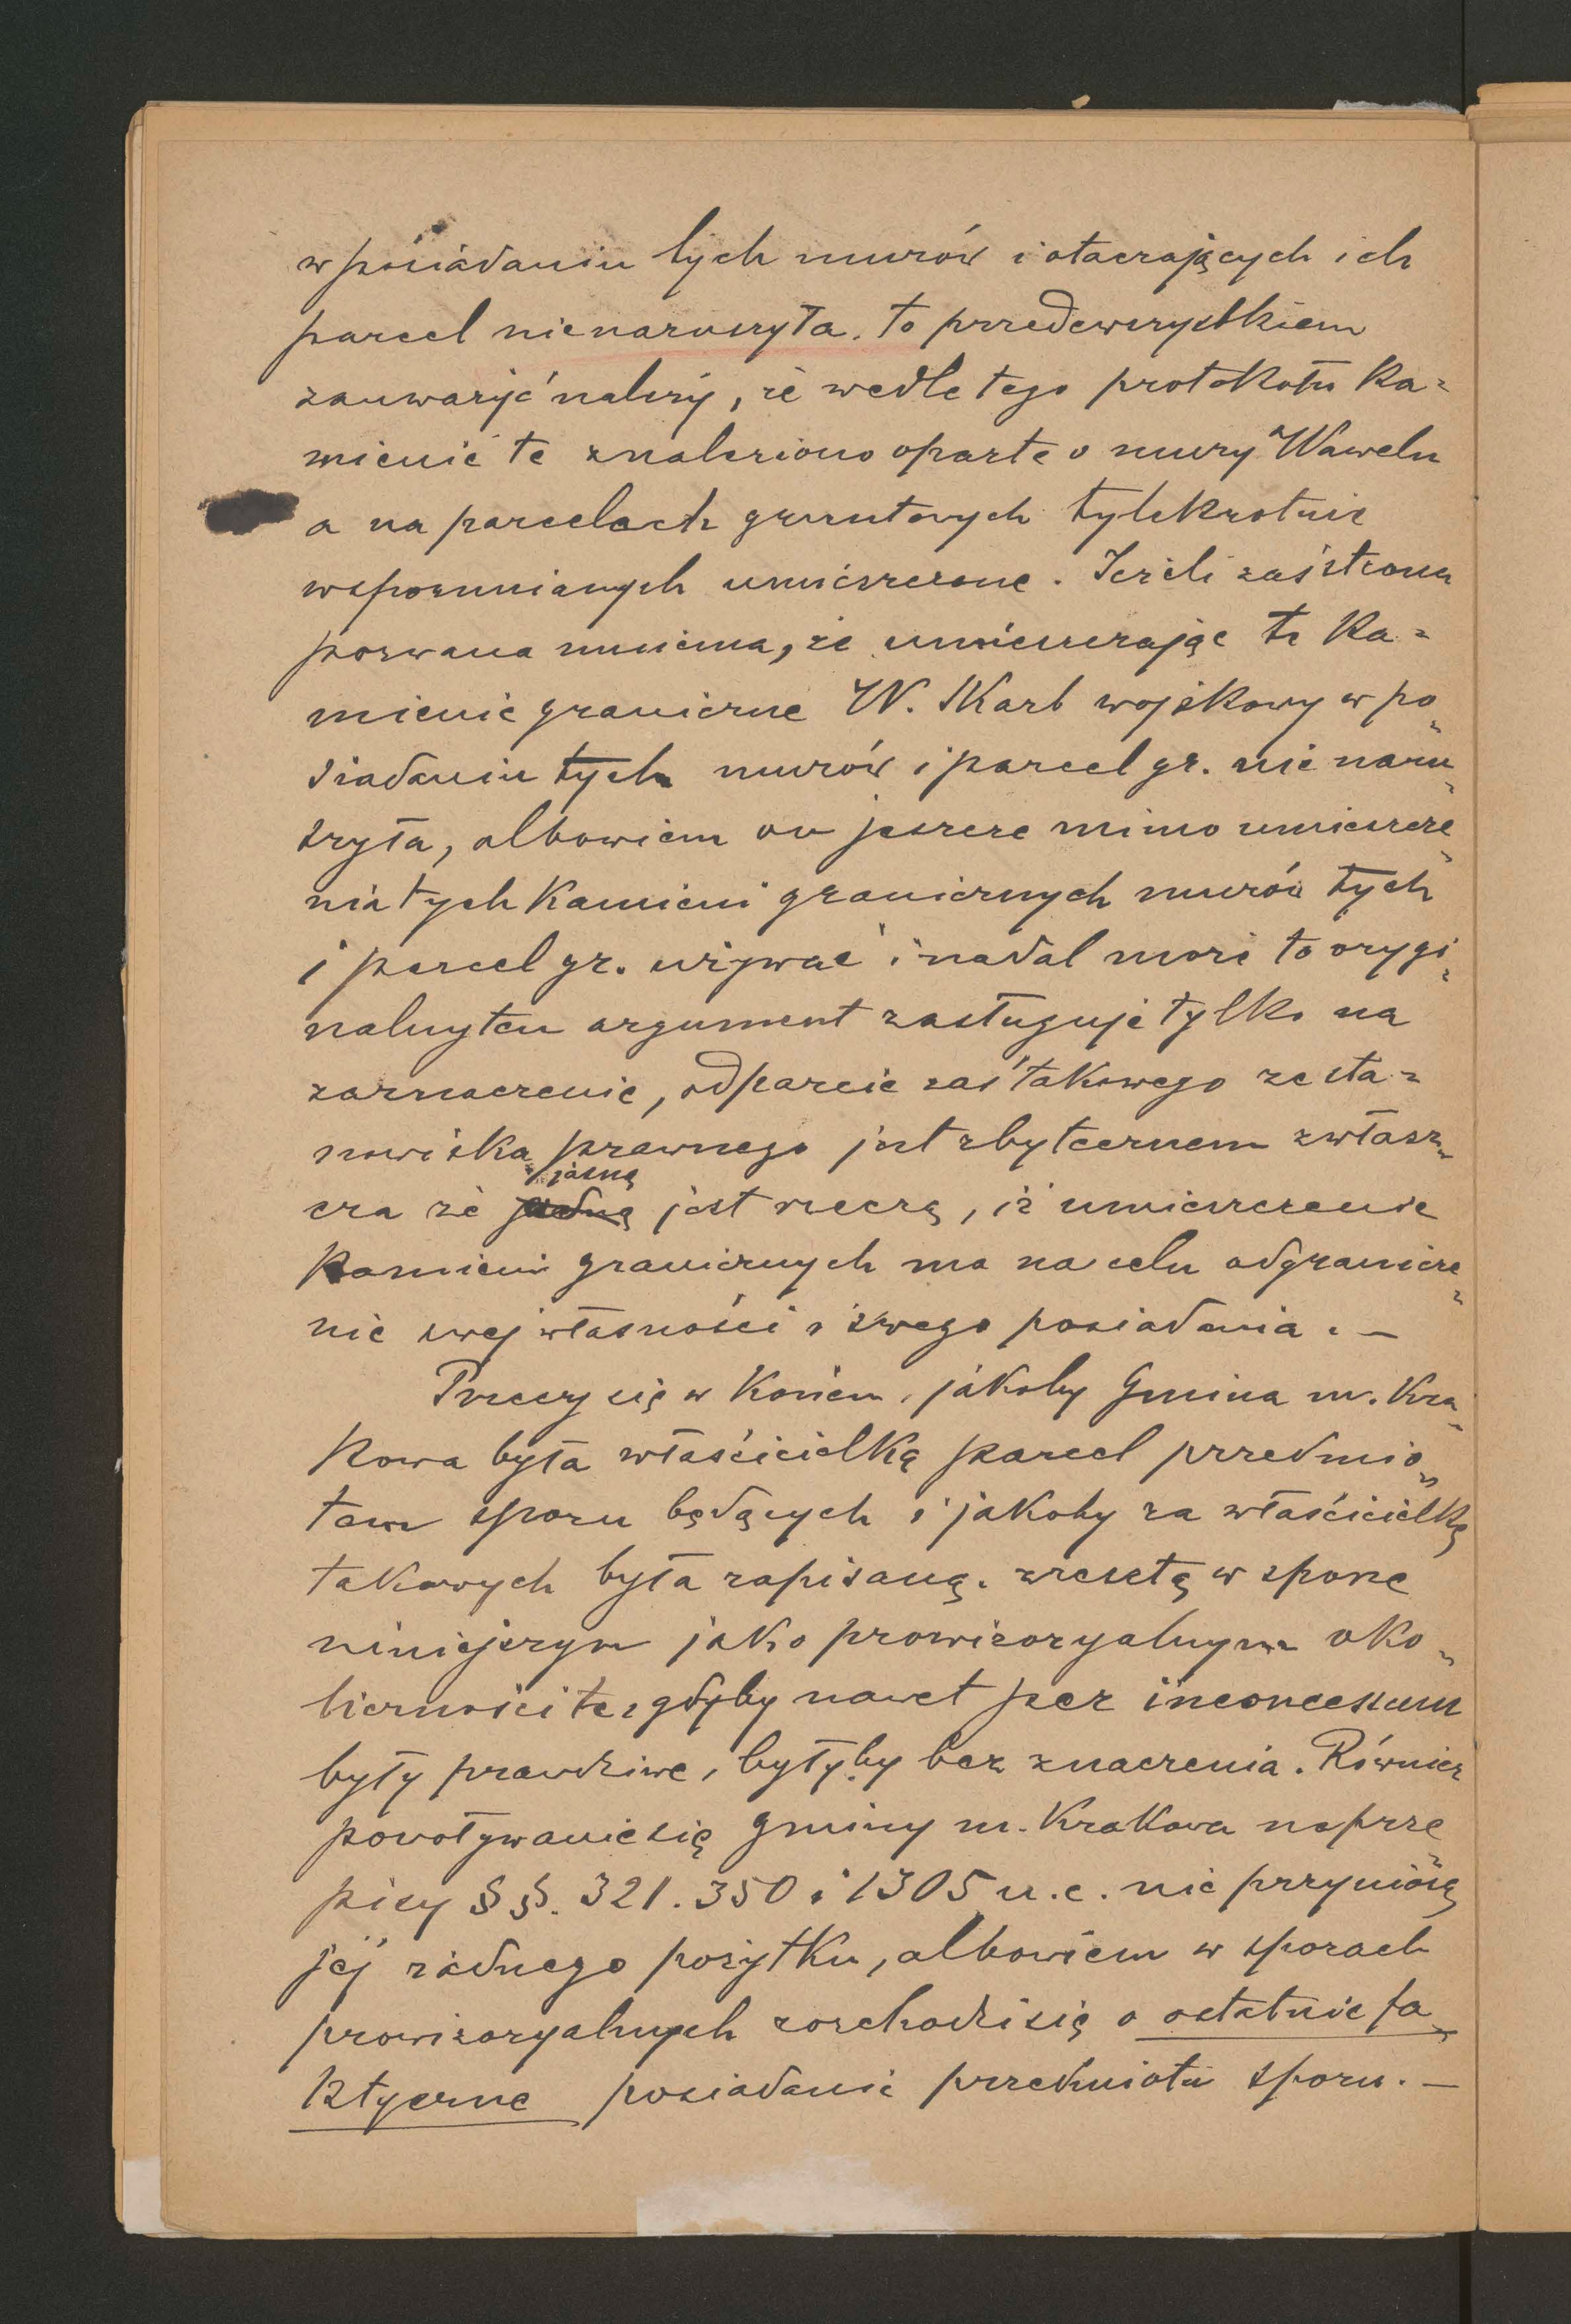 w posiadaniu tych murów i otaczających ich
parcel nienaruszyła. to przedewszystkiem
zauważyć należy, że wedle tego protokołu ka=
mienie te znaleziono oparte o mury Wawelu
a na parcelach gruntowych tylekrotnie
wspomnianych umieszczone. Jeżeli zaś strona
pozwana mniema, że umieszczając te ka=
mienie graniczne W. Skarb wojskowy w po=
siadaniu tych murów i parcel gr. nie naru=
szyła, albowiem on jeszcze mimo umieszcze=
nia tych kamieni granicznych murów tych
i parcel gr. używać i nadal może to orygi=
nalny ten argument zasługuje tylko na
zaznaczenie, odparcie zaś takowego ze sta=
nowiska prawnego jest zbytecznem zwłasz=
cza że jasną jest rzeczą, iż umieszczenie
kamieni granicznych ma na celu odgranicze=
nie swej własności i swego posiadania. —
Przeczy się w końcu, jakoby Gmina m. Kra=
kowa była właścicielką parcel przedmio=
tem sporu będących i jakoby za właścicielkę
takowych była zapisaną. zresztą w sporze
niniejszym jako prowizoryalnym oko=
liczności te, gdyby nawet per inconcessum
były prawdziwe, byłyby bez znaczenia. Również
powoływanie się gminy m. Krakowa na prze=
pisy §§. 321. 350 i 1305 u.c. nie przyniosą
jej żadnego pożytku, albowiem w sporach
prowizoryalnych rozchodzi się o ostatnie fa=
ktyczne posiadanie przedmiotu sporu. —